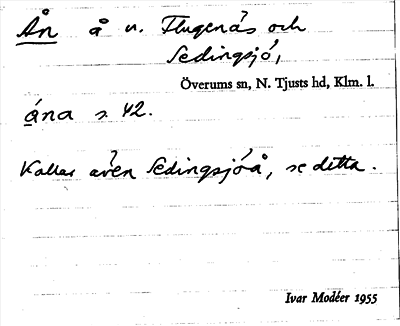 Ån å n. Flugenäs och
Sedingsjö,
Överums sn, N. Tjusts hd, Klm. l.
ána s. 42.
Kallas även Sedingsjöå, se detta.
Ivar Modéer 1955